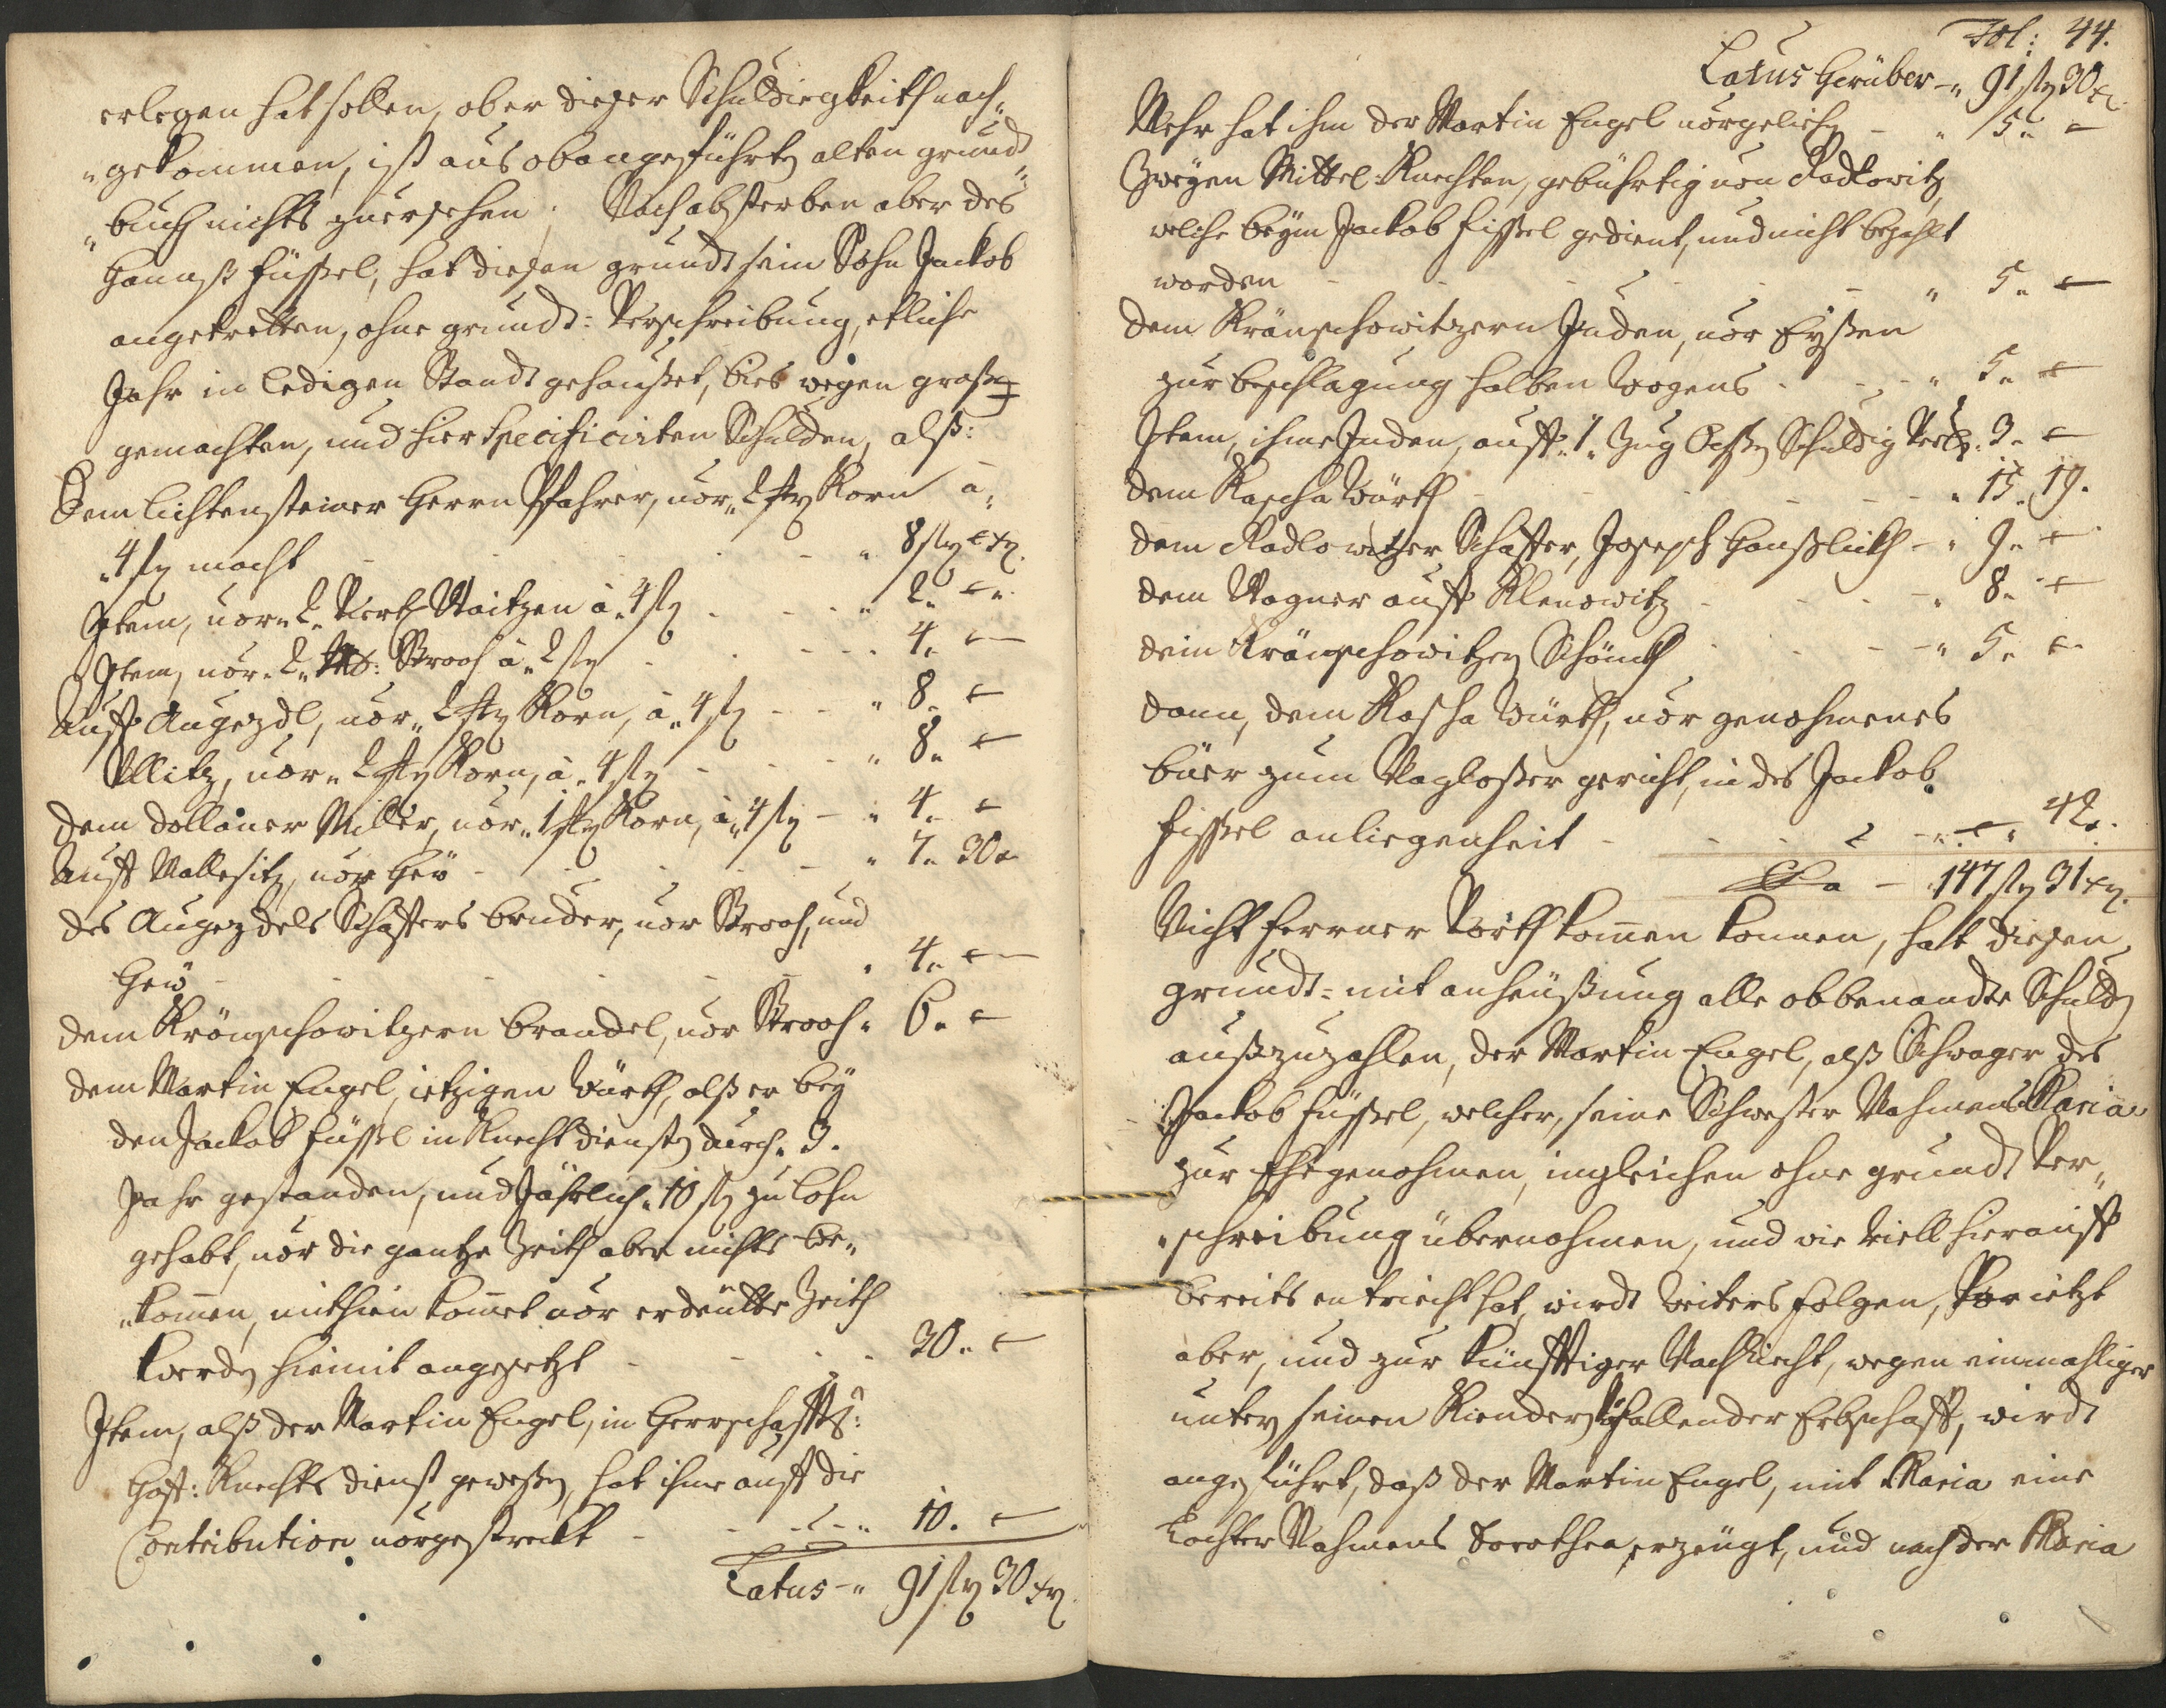 erlegen hat sollen, ob er dieser Schuldiegkeith nach„
„gekommen, ist aus obangeführten alten grundt„
„buch nichts zuersehen. Nach absterben aber des
Hannß Füssel, hat diesen grundt sein Sohn Jackob
angetretten, ohne grundt=Verschreibung, etliche
Jahr in ledigen Standt gehauset, bies wegen grossen
gemachten, und hier Specificirten Schulden, alß:
Dem Lichtensteiner Herrn Pfahrer, vor „ 2 Korn â„
„4 f macht - - - „ 8 f - x.
Item, vor „ 2 „ Viertl Waitzen â „ 4 f - - „ 2 „ -
Item, vor „ 2 „ Stroh â „ 2 f - - - 4 „ -
Auff Augezdl, vor „ 2 Korn, â „ 4 f - - „ 8 „ -
Ullitz, vor „ 2 Korn, â „ 4 f - - - „ 8 „ -
Dem Dollaner Miller, vor „ 1 Korn, â „ 4 f - „ 4 „ -
Auff Wallesitz, vor Heü - - - „ 7 „ 30 „
des Augezdels Schaffers bruder, vor Stroh, und
Heü - - - „ 4 „ -
dem Kröupschowitzern brandel, vor Stroh „ 6 „ -
dem Martin Engel, ietzigen Würth, alß er bey
den Jackob Füssel in Knecht diensten durch „ 3 „
Jahr gestanden, und Jährlich „ 10 f zu Lohn
gehabt, vor die gantze Zeith aber nichts be„
„kommen, mithin kommet vor erdeütte Zeith
werden hiemit angesetzt - - - 30 „ -
Item, alß der Martin Engel, in Herrschaffts:
Hoff: Knechts dienst gewesen, hat ihme auff die
Contribution vorgestreckt - - - „ 10 „ -
Latus - „ 91 f 30 x.
Fol: 44.
Latus Herüber - „ 91 f 30 x.
Mehr hat ihm der Martin Engel vorgeliehen - „ 5 „ -
Zweyen Mittel=Knechten, gebührtig von Radlowitz,
welche beym Jackob Fissel gedient, und nicht bezahlt
worden - - - „ 5 „ -
dem Kräupschowitzern Juden, vor Eyssen
zur beschlagung halben Wagens - - „ 5 „ -
Item, ihme Juden, auff „ 1 „ Zug Ochsen Schuldig „ 3 „ -
dem Kascha Würth - - - „ 15 „ 19.
dem Radlowitzer Schaffer, Joseph - „ 9 „ -
dem Wagner auff Klenowitz - - - „ 8 „ -
dem Kräupschowitzen Schmidt - - „ 5 „ -
dann, dem Kascha Würth, vor genohmenes
büer zum gericht, in des Jackob
Fissel anliegenheit - - - „ - „ 42.
Sa - „ 147 f 31 x.
Nicht ferrner forth kommen konnen, hatt diesen
grundt=mit anheüssung alle obbenandte Schulden
außzuzahlen, der Martin Engel, alß Schwager des
Jackob Füssel, welcher, seine Schwester Nahmens Maria
zur Ehe genohmen, ingleichen ohne grundt Ver„
„schreibung übernohmen, und wie viell hierauff
bereits entriecht hat, wirdt weiters folgen, Vor ietzt
aber, und zur künfftiger Nachricht, wegen einmahliger
unter seinen Kiendern zufallender Erbschafft, wirdt
angeführt, daß der Martin Engel, mit Maria eine
Tochter Nahmens Dorothea, erzeügt, und nach der Maria